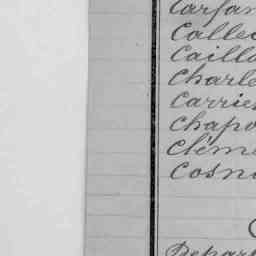 Carfan
Callec
Caill
Charle
Carrie
Chapo
Cléme
Cosn
Depar